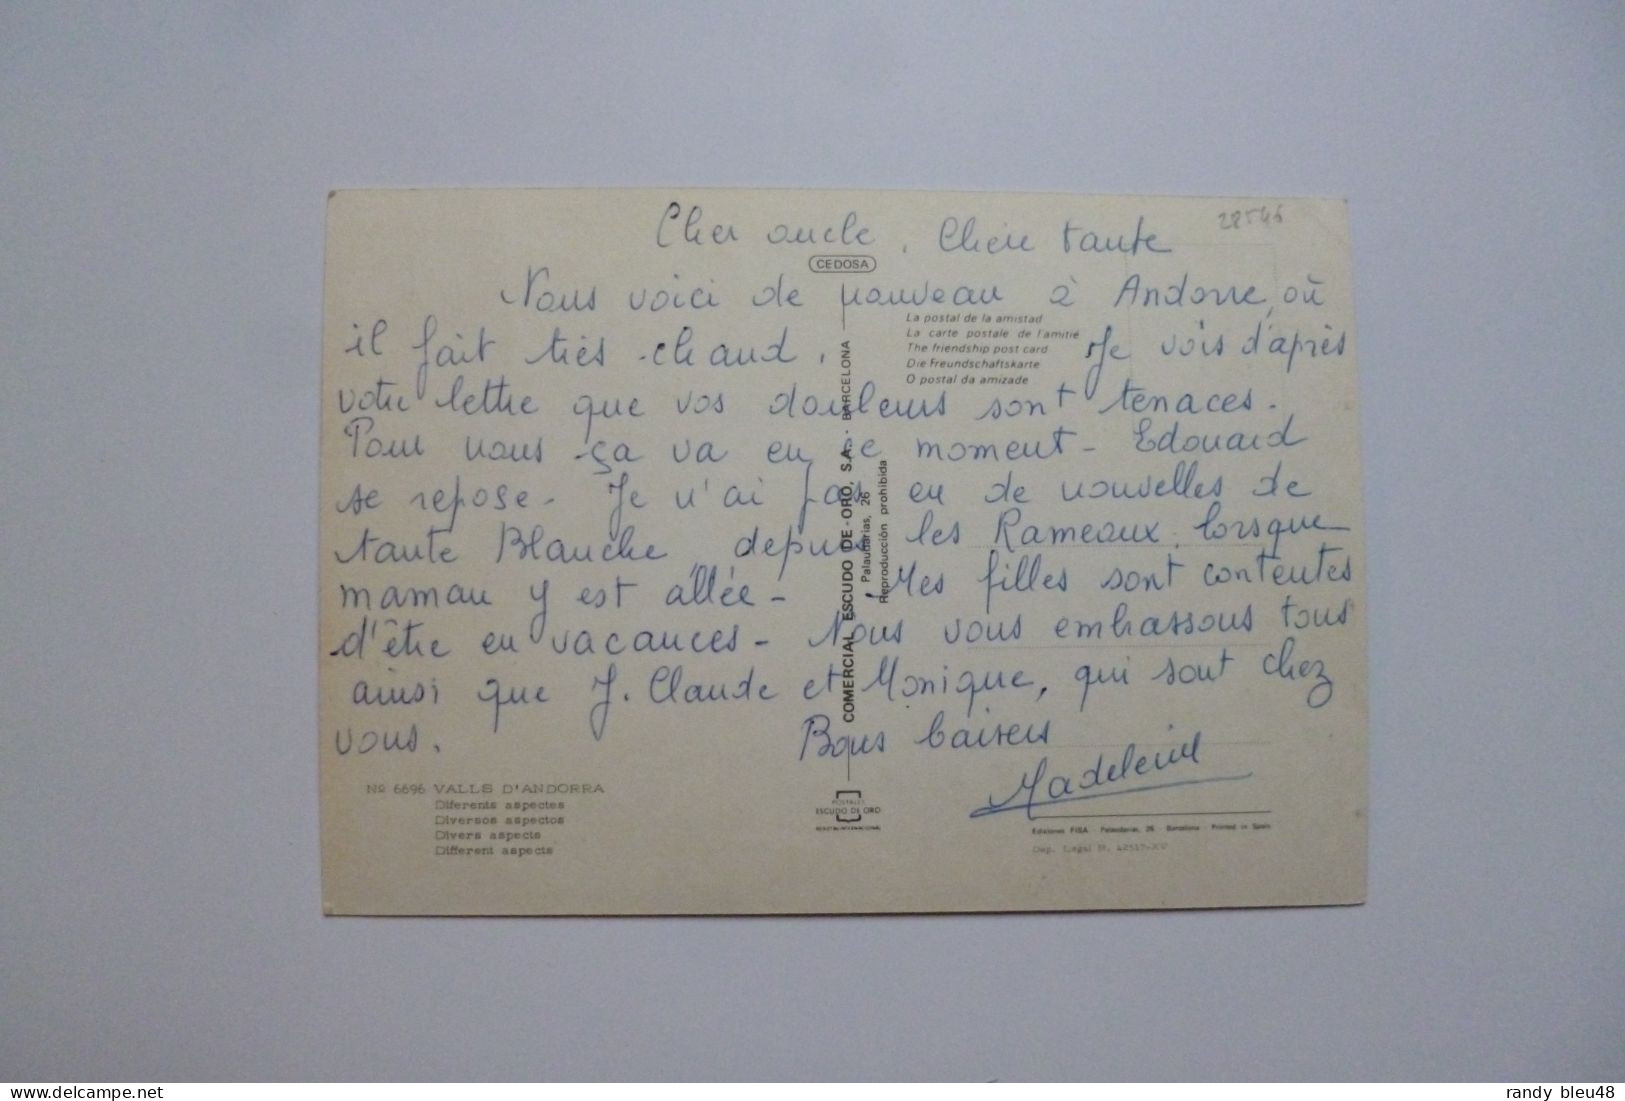 Cher oncle, Chère tante
CEDOSA
Nous voici de nouveau à Andorre, où
il fait très chaud. Je vois d'après
votre lettre que vos douleurs sont tenaces.
Pour nous ça va en ce moment - Edouard
se repose - Je n'ai pas eu de nouvelles de
tante Blanche, depuis les Rameaux, lorsque
maman y est allée - Mes filles sont contentes
d'être en vacances - Nous vous embrassons tous
ainsi que J. Claude et Monique, qui sont chez
vous. Bons baisers
Madeleine
La postal de la amistad
La carte postale de l'amitié
The friendship post card
Die Freundschaftskarte
O postal da amizade
COMERCIAL ESCUDO DE ORO, S.A. - BARCELONA
Palaudarias, 26
Reproducción prohibida
Nº 6696 VALLS D'ANDORRA
Diferents aspectes
Diversos aspectos
Divers aspects
Different aspects
POSTALES
ESCUDO DE ORO
Ediciones FISA - Palaudarias, 26 - Barcelona - Printed in Spain
Dep. Legal B.
randy_bleu48